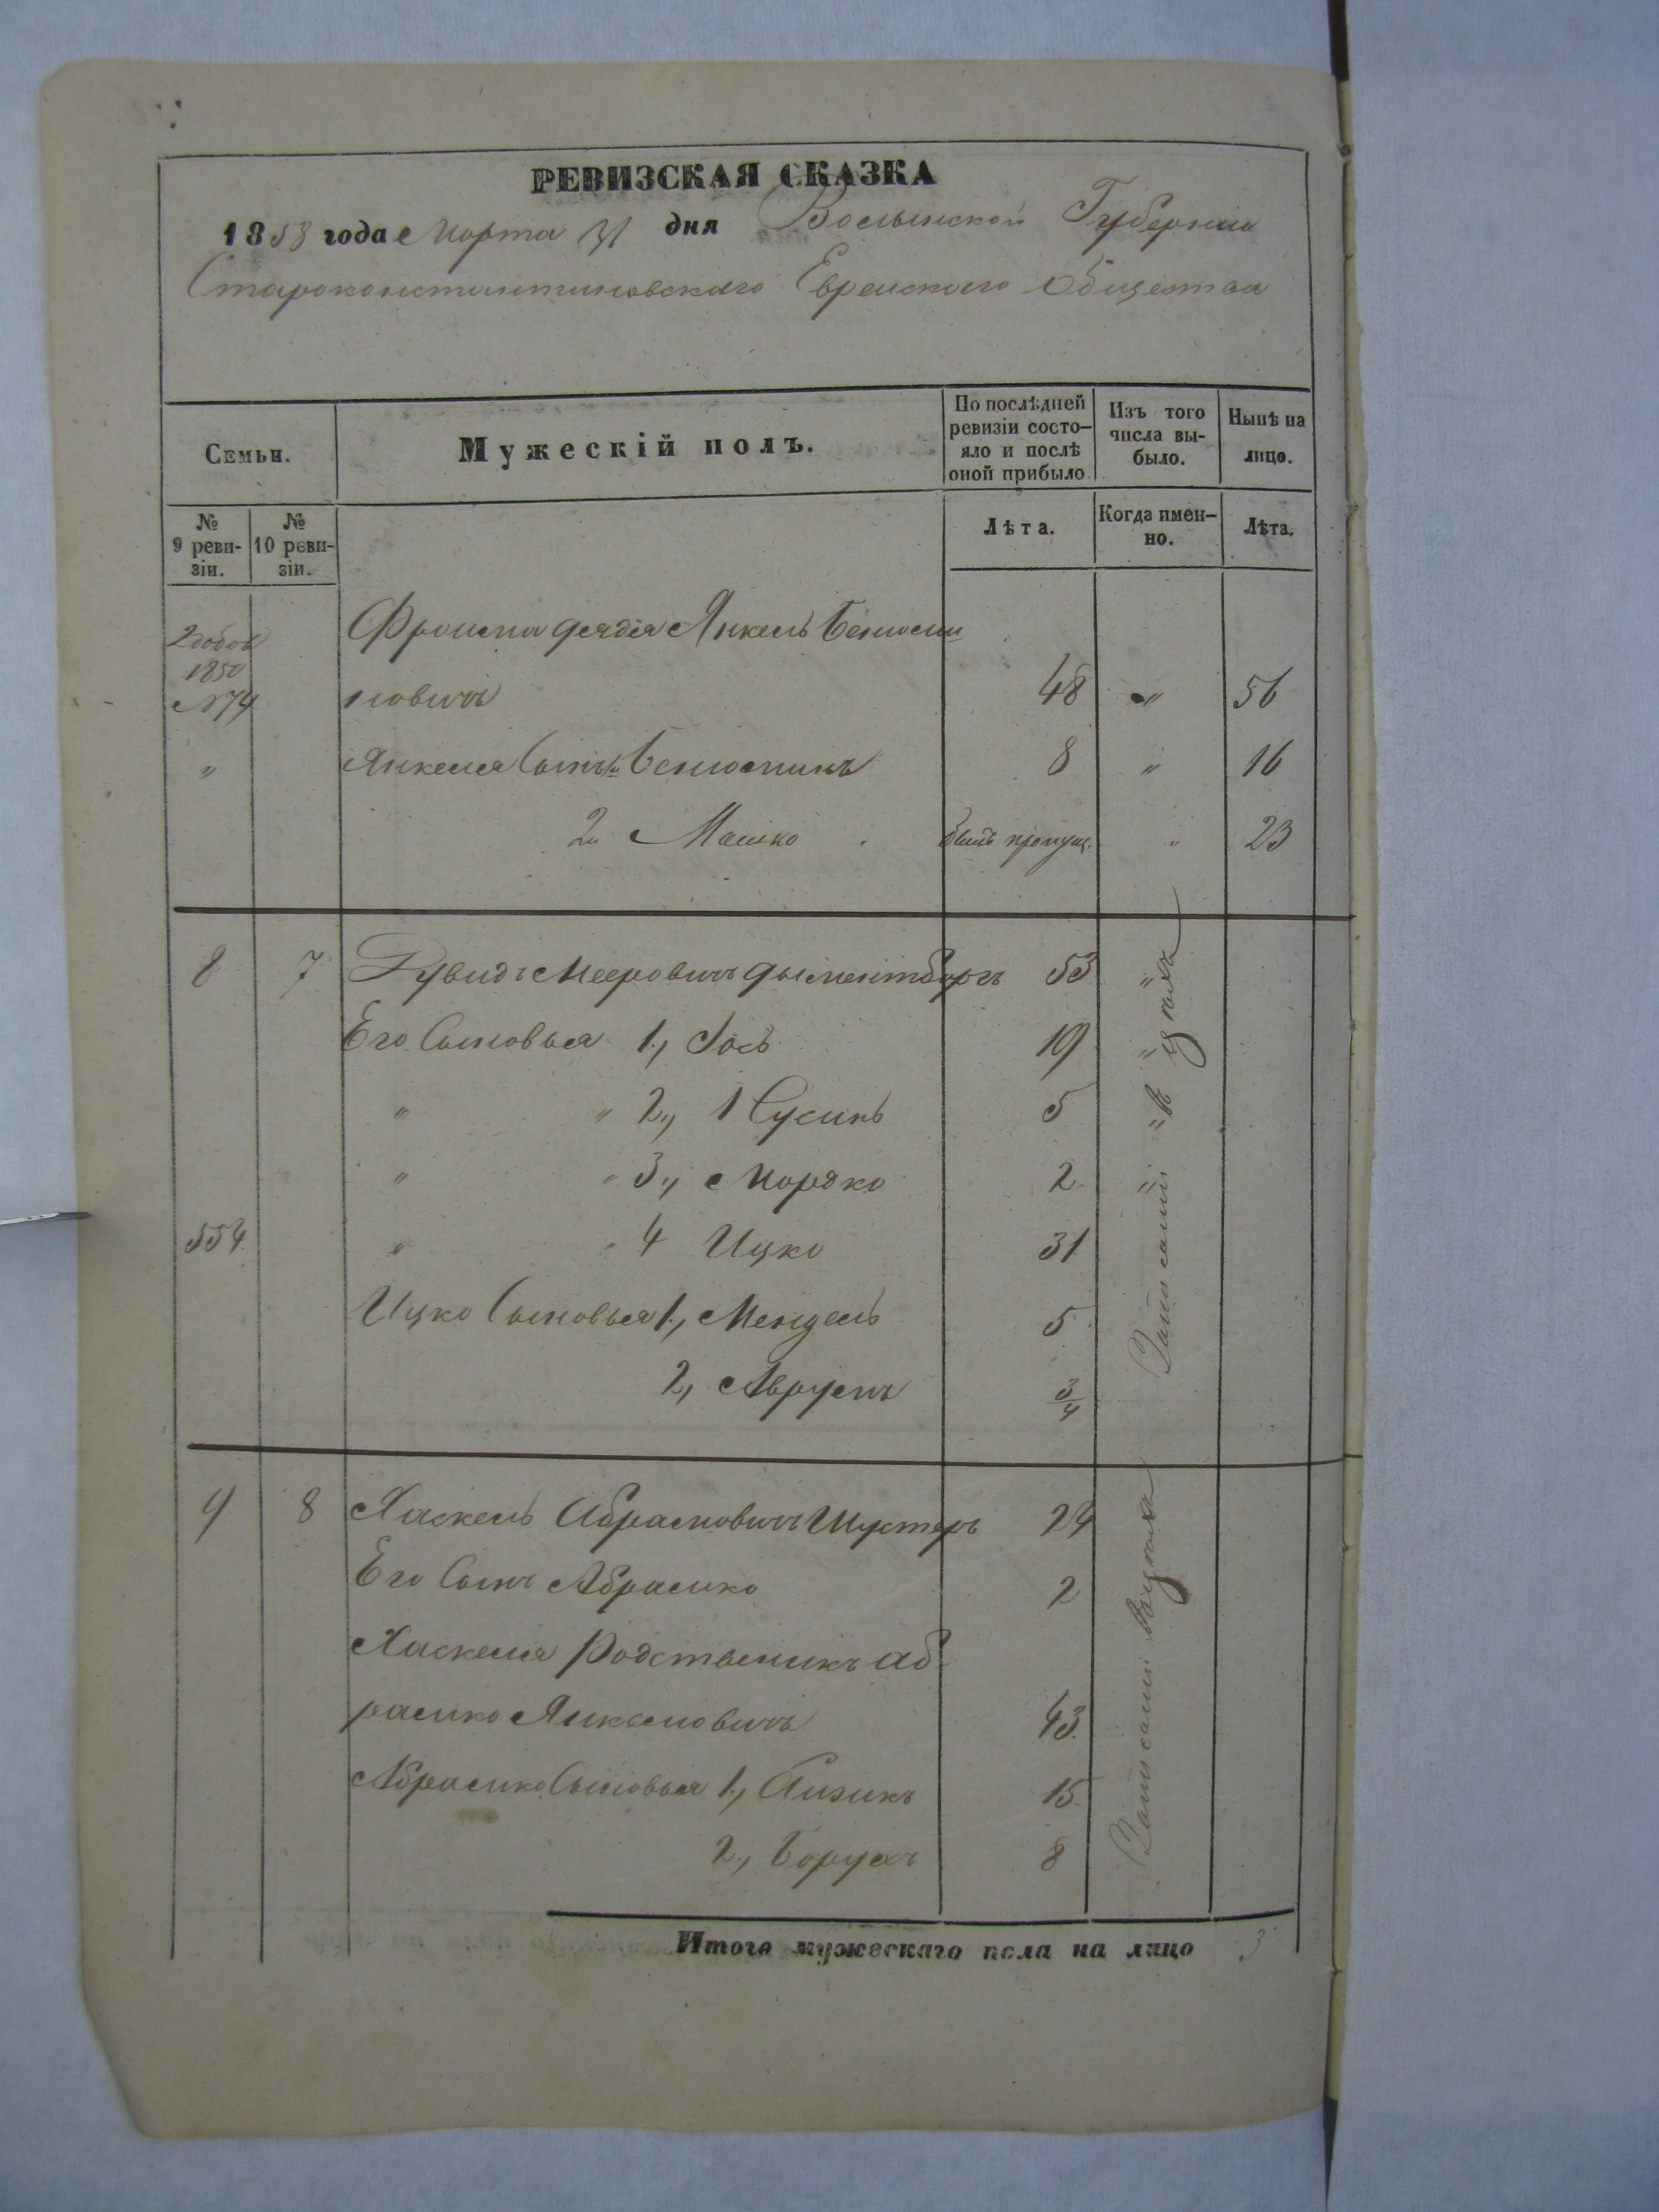 РЕВИЗСКАЯ СКАЗКА
1858 года Марта 31 дня Волынской Губерніи
Староконстантиновскаго Еврейскаго Общества
Семьи.
Мужескій полъ.
По послѣдней ревизіи состо-яло и послѣ оной прибыло
Изъ того числа вы-было.
Нынѣ на лицо.
№ 9 реви-зіи.
№ 10 реви-зіи.
Лѣта.
Когда имен-но.
Лѣта.
1850
№74
Фроима дядя Янкель Бенюми
новичъ 48 " 56
" Янкеля Сынъ 1 Бенюминъ 8 " 16
2 Машко былъ пропущ. " 23
8 7 Рувидъ Мееровичъ Дыментборгъ 53 "
Его Сыновья 1, Іось 19 "
" " 2, Нусинъ 5 "
" " 3, Мордко 2 "
554 " " 4 Ицко 31
Ицко Сыновья 1, Мендель 5
2, Аврумъ 3/4
9 8 Хаскель Абрамовичъ Шустеръ 24
Его Сынъ Абрамко 2
Хаскеля Родственикъ Аб-
рамко Янкелевичъ 43
Абрамко Сыновья 1, Айзикъ 15
2, Борухъ 8
Итого мужескаго пола на лицо 3